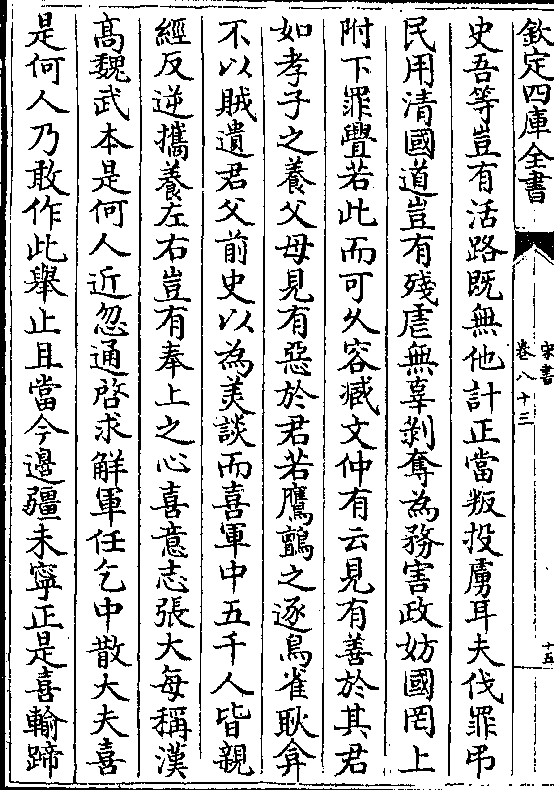 欽定四庫全書
宋書
卷八十三
十五
史吾等豈有活路既無他計正當叛投虜耳夫伐罪弔
民用清國道豈有殘虐無辜剝奪為務害政妨國罔上
附下罪舋若此而可久容臧文仲有云見有善於其君
如孝子之養父母見有惡於君若鷹鸇之逐鳥雀耿弇
不以賊遺君父前史以為美談而喜軍中五千人皆親
經反逆攜養左右豈有奉上之心喜意志張大每稱漢
髙魏武本是何人近忽通啓求解軍任乞中散大夫喜
是何人乃敢作此舉止且當今邊疆未寧正是喜輸蹄